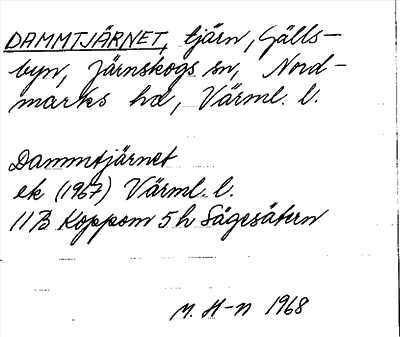 DAMMTJÄRNET, tjärn, Gälls-
byn, Järnskogs sn, Nord-
marks hd, Värml. l.
Dammtjärnet
ek (1967) Värml. l.
11B Koppom 5h Sågesätern
M. H-n 1968